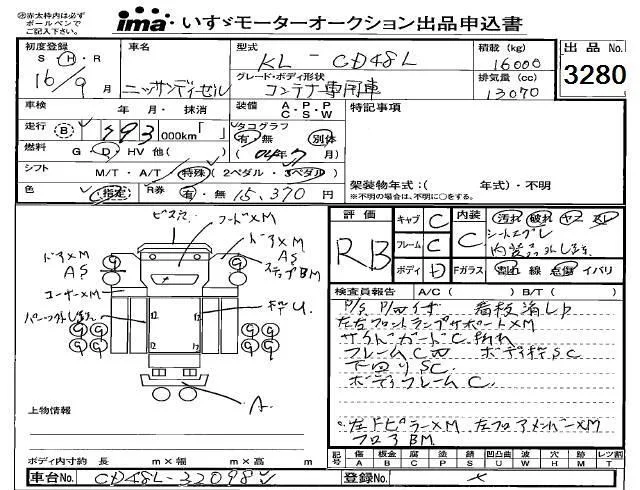 ㊟赤太枠内は必ず
ボールペンで
ご記入下さい。
ima いすゞモーターオークション出品申込書
初度登録 車名 型式 積載 (kg) 出品 No.
S・H・R KL-CD48L 16000
16/9 月 ニッサンディーゼル グレード・ボディ形状 排気量 (cc) 3280
コンテナ専用車 13070
車検 年・月・抹消 装備 A・P・P C・S・W 特記事項
走行 B 793 000km タコグラフ
有・無 別体
燃料 G・D・HV 他( ) (04年7月)
シフト M/T・A/T 特殊 (2ペダル・3ペダル) 架装物年式:( 年式)・不明
色 指定 R券 有・無 15,370円 ※不明の場合は、不明に○をする。
評価 キャブ C 内装 汚れ 破れ ヤケ
RB フレーム C C シートスグレ
内装外します
ボディ D Fガラス 割れ 線 点傷 イバリ
ビスアナ
フードXM
ドアXM ドアXM
AS AS
ステップBM
コーナーXM
U
12 12
12 12
A
検査員報告 A/C ( ) B/T ( )
左右フロントランプサポートXM
サイドガードC折れ
フレームC凹 ボディ枠SC
下回りSC
ボディフレームC
左ドピラーXM 左フロアメンバーXM
フロアBM
上物情報
記号 傷 板金 腐 塗 錆 凹凸曲 波 穴 時 レツ割
A B C P S U W H M T
ボディ内寸約 長 m×幅 m×高 m
車台No. CD48L-32098 登録No.